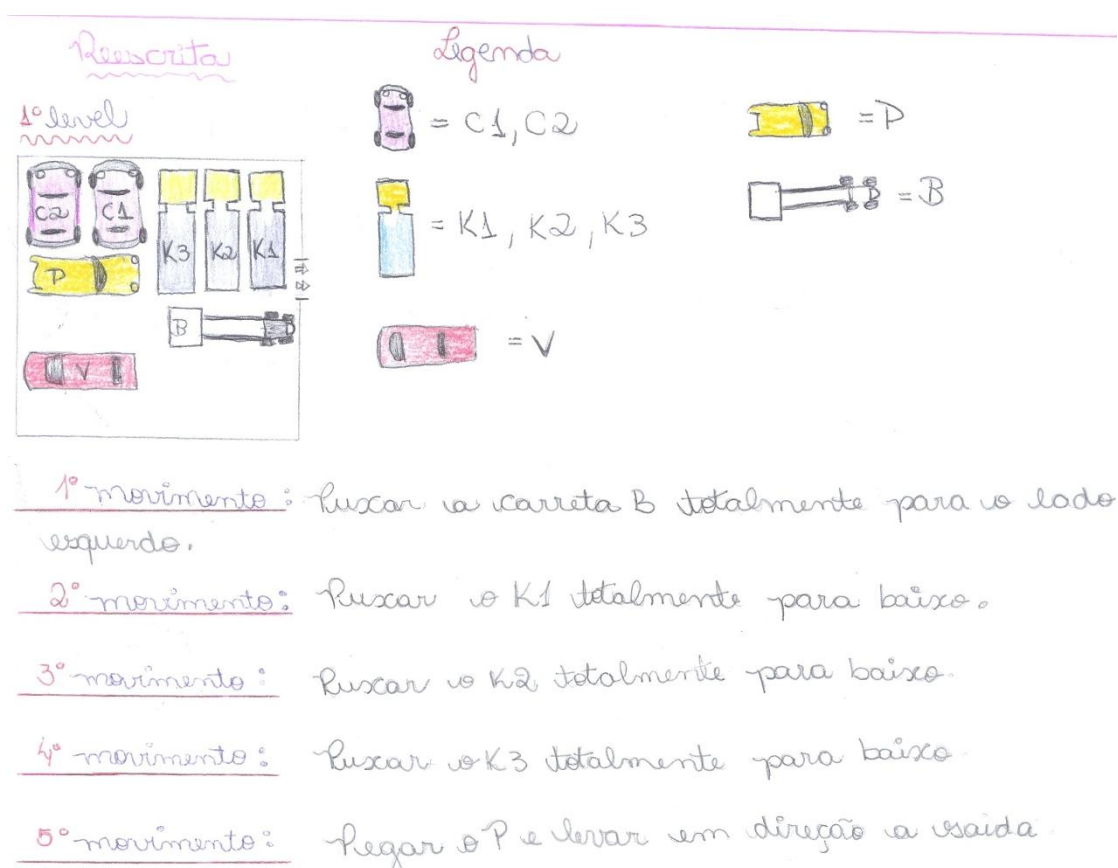 Reescrita
Legenda
1° level
= C1, C2
= P
C2 C1 K3 K2 K1
= K1, K2, K3
= B
P
B
= V
V
1° movimento: Puxar a carreta B totalmente para o lado
esquerdo.
2° movimento: Puxar o K1 totalmente para baixo.
3° movimento: Puxar o K2 totalmente para baixo.
4° movimento: Puxar o K3 totalmente para baixo
5° movimento: Pegar o P e levar em direção a saida